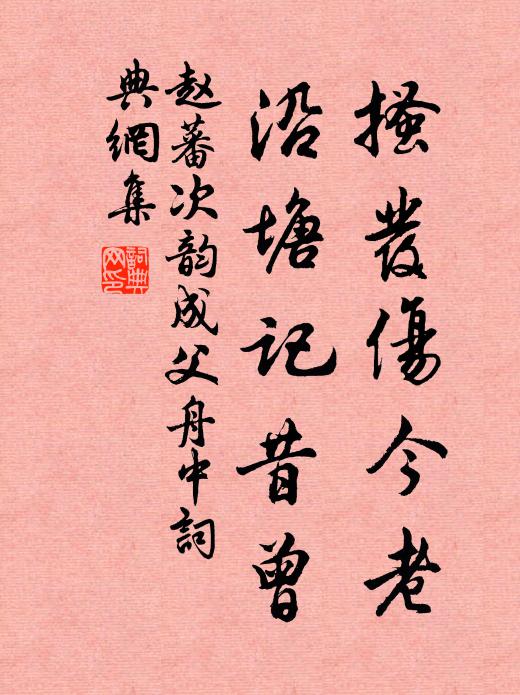 搔發傷今老
沿塘記昔曾
赵蕃次韵成父舟中詞
典網集
詞典
网印